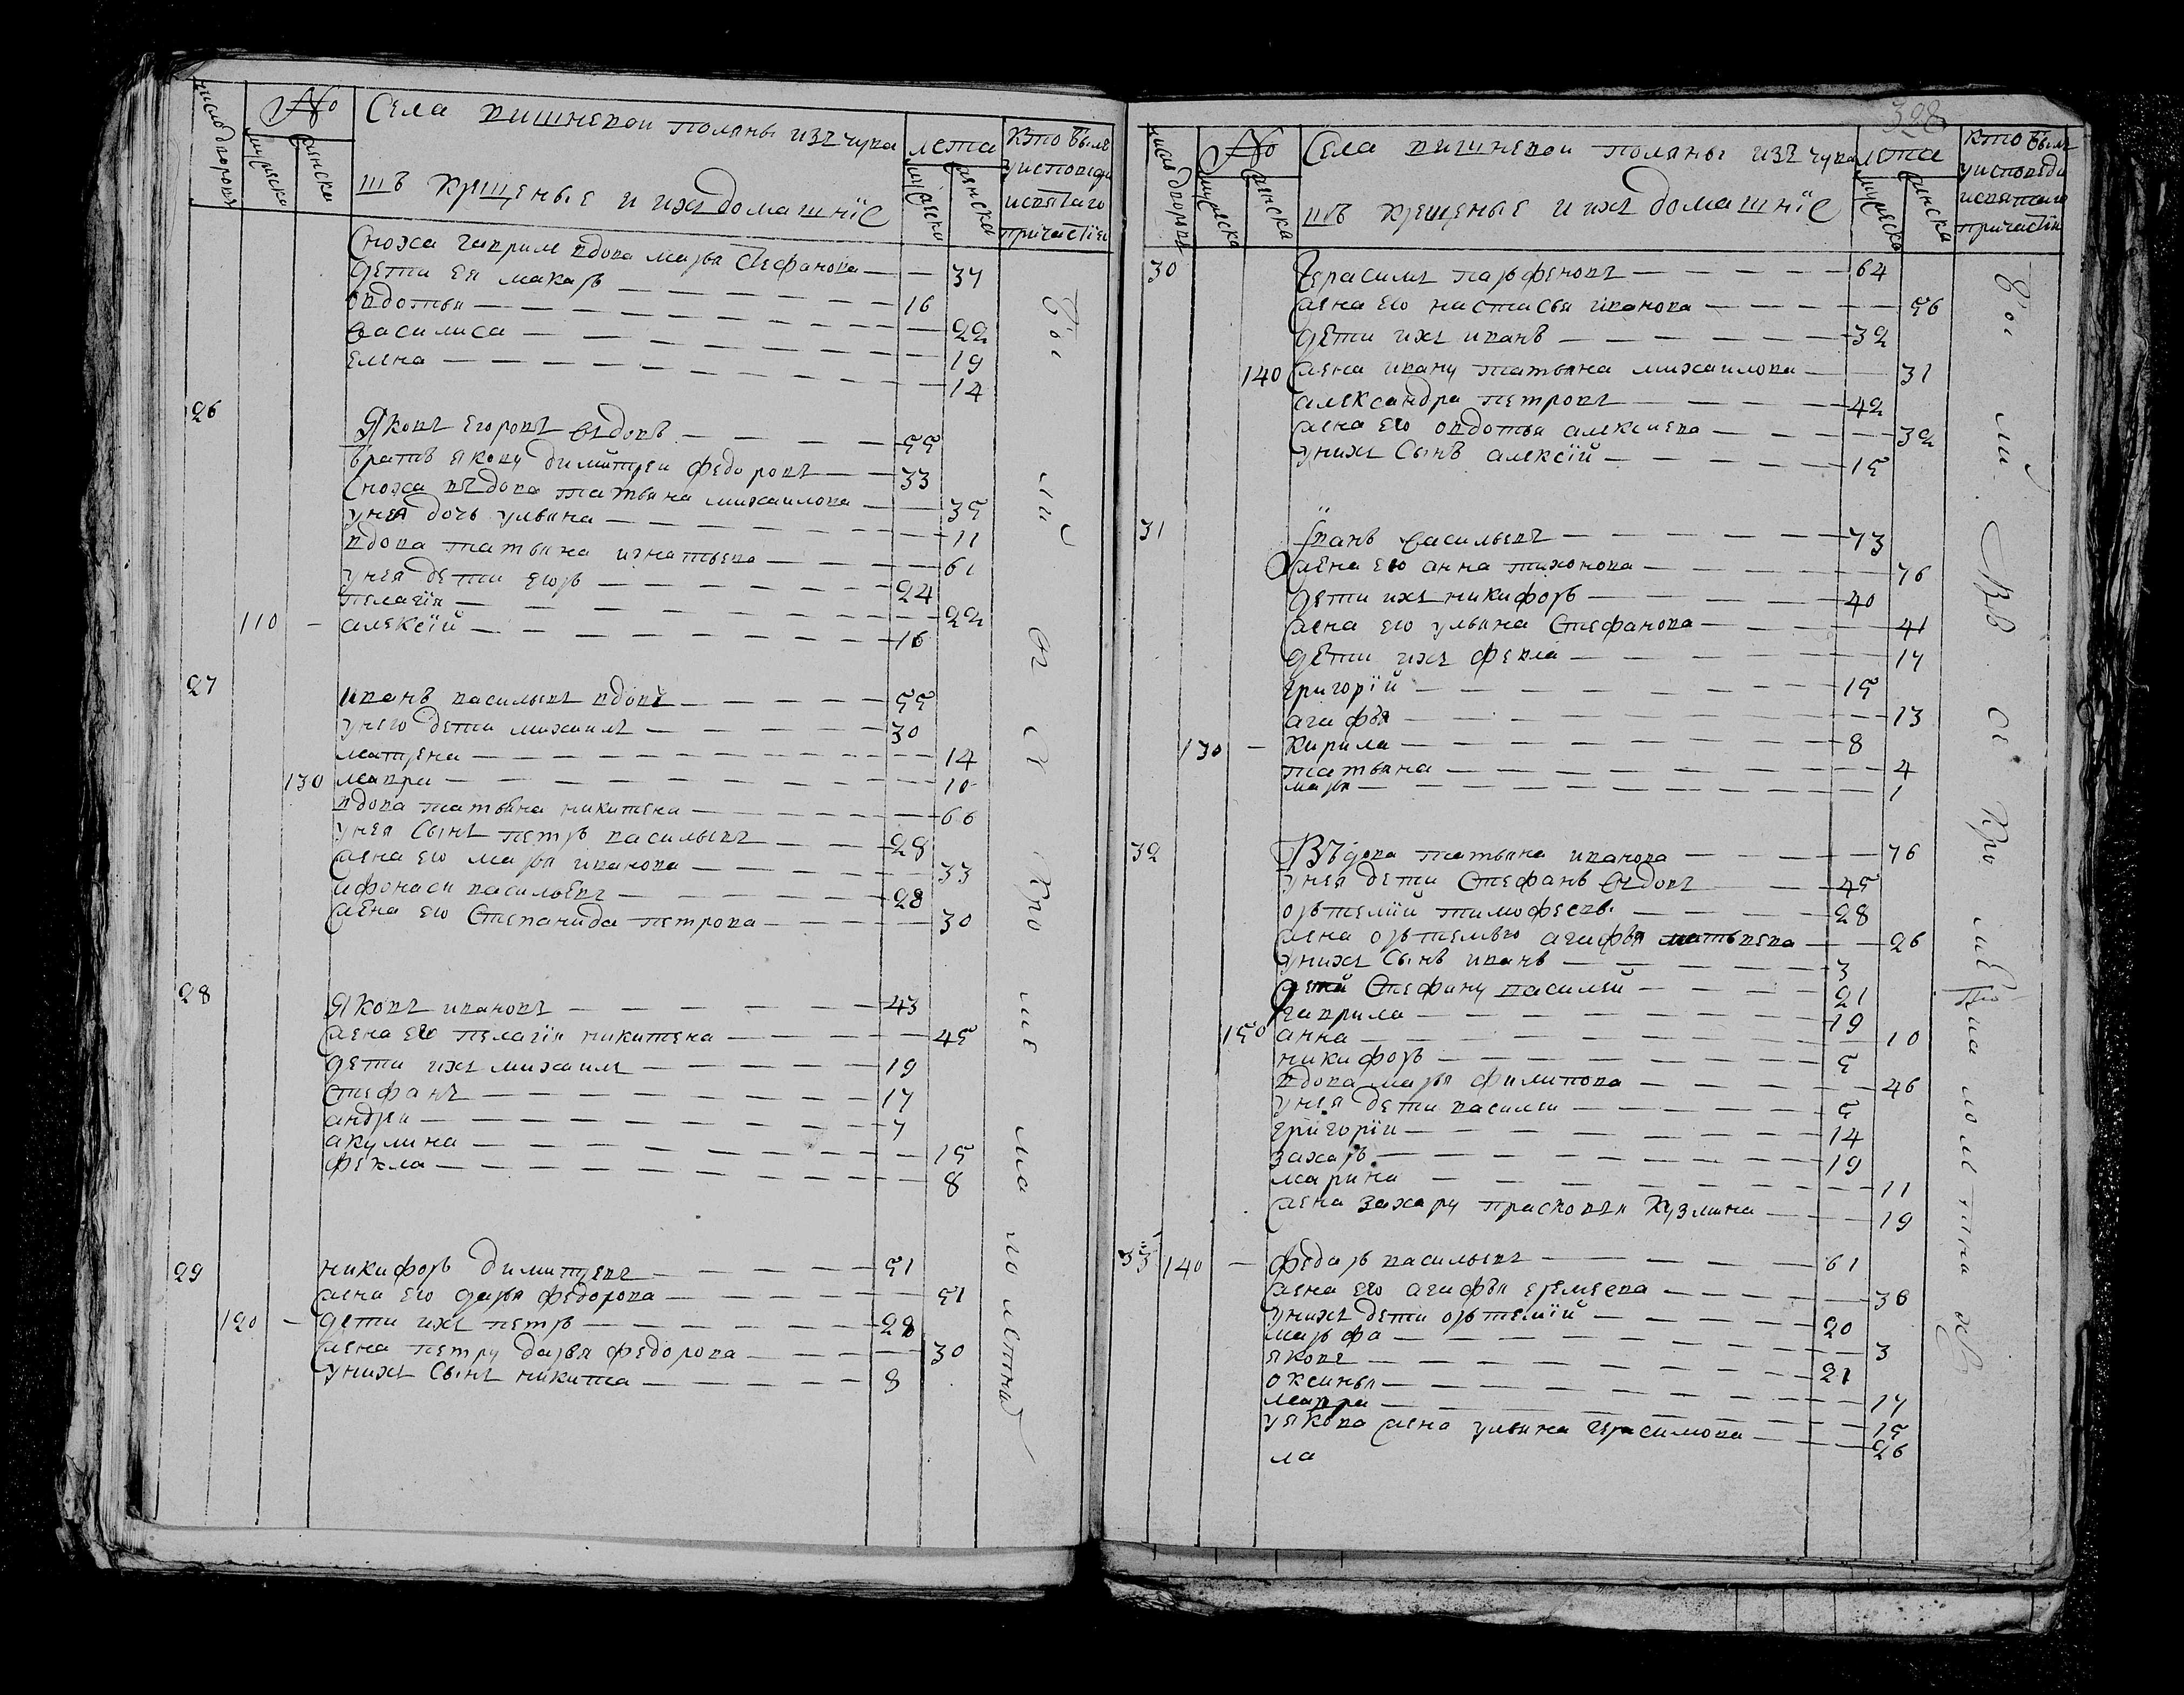 число дворовъ
№
мужеска
женска
Села вишневои поляны изъ чува
шъ крщеные и ихъ домашнїе
лета
мужеска
женска
кто былъ
уисповеди
исвятаго
причастїя
сноха гаврилѣ вдова марья стефанова — 37
дети ея макаръ — 16
овдотья — 22
василиса — 19
елена — 14
26
Яковъ егоровъ вдовъ — 55
братъ якову димитреи федоровъ — 33
сноха въдова татьяна михаилова — 35
унея дочь ульяна — 11
вдова татьяна игнатьева — 61
унея дети егоръ — 24
пелагїя — 22
110 — алексїй — 16
27
иванъ васильевъ вдовъ — 55
унего дети михаилъ — 30
матрена — 14
130 мавра — 10
вдова татьяна никитена — 66
унея сынъ петръ васильевъ — 28
жена его марья иванова — 33
афонаси васильевъ — 28
жена его степанида петрова — 30
28
Яковъ ивановъ — 43
жена его пелагїя никитена — 45
дети ихъ михаилъ — 19
стефанъ — 17
андреи — 7
акулина — 15
фекла — 8
29
никифоръ димитревъ — 51
жена его дарья федорова — 51
120 — дети ихъ петръ — 28
жена петру дарья федорова — 30
унихъ сынъ никита — 8
398
число дворовъ
№
мужеска
женска
Села вишневои поляны изъ чува
шъ крещеные и ихъ домашнїе
лета
мужеска
женска
кто былъ
уисповеди
исвятаго
причастїя
30
Герасимъ парфеновъ — 64
жена его настасья иванова — 56
дети ихъ иванъ — 32
140 жена ивану татьяна михаилова — 31
александра петровъ — 42
жена его овдотья алексиева — 32
унихъ сынъ алексїй — 15
31
Иванъ васильевъ — 73
жена его анна тихонова — 76
дети ихъ никифоръ — 40
жена его ульяна стефанова — 41
дети ихъ фекла — 17
григорїй — 15
агафья — 13
130 — кирила — 8
татьяна — 4
марья — 1
32
Въдова татьяна иванова — 76
унея дети стефанъ вдовъ — 45
орътемїй тимофеевъ — 28
жена орътемью агафья матьвева — 26
унихъ сынъ иванъ — 3
дети стефану василей — 21
гаврила — 19
150 анна — 10
никифоръ — 5
вдова марья филипова — 46
унея дети василеи — 5
григорїи — 14
захаръ — 19
марина — 11
жена захару прасковья кузмина — 19
33
140 — федоръ васильевъ — 61
жена его агафья еремеева — 36
унихъ дети орътемїй — 20
маръфа — 3
яковъ — 21
оксинья — 17
мавра — 15
уякова жена ульяна герасимова — 26
ла